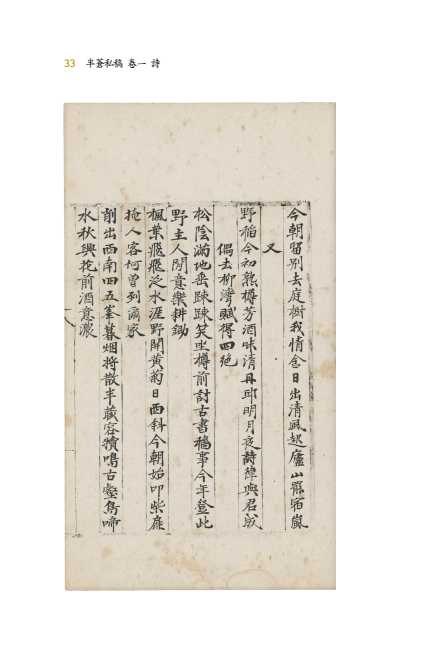 33 半蒼私稿 卷一 詩
今朝留別去庭樹我情含日出淸風起廬山羃宿嵐
又
野稻今初熟樽芳酒味淸丹邱明月夜詩律與君成
偶去柳濟賦得四絶
松陰滿地岳踈踈笑坐樽前討古書穡事今年登此
野主人閒意樂耕鋤
楓葉飛飛泛水涯野開黃菊日西斜今朝始叩柴扉
掩人客何曾列滿家
前出西南四五峯暮烟將散半藏容犢鳴古壑鳥啼
水秋與花前酒意濃